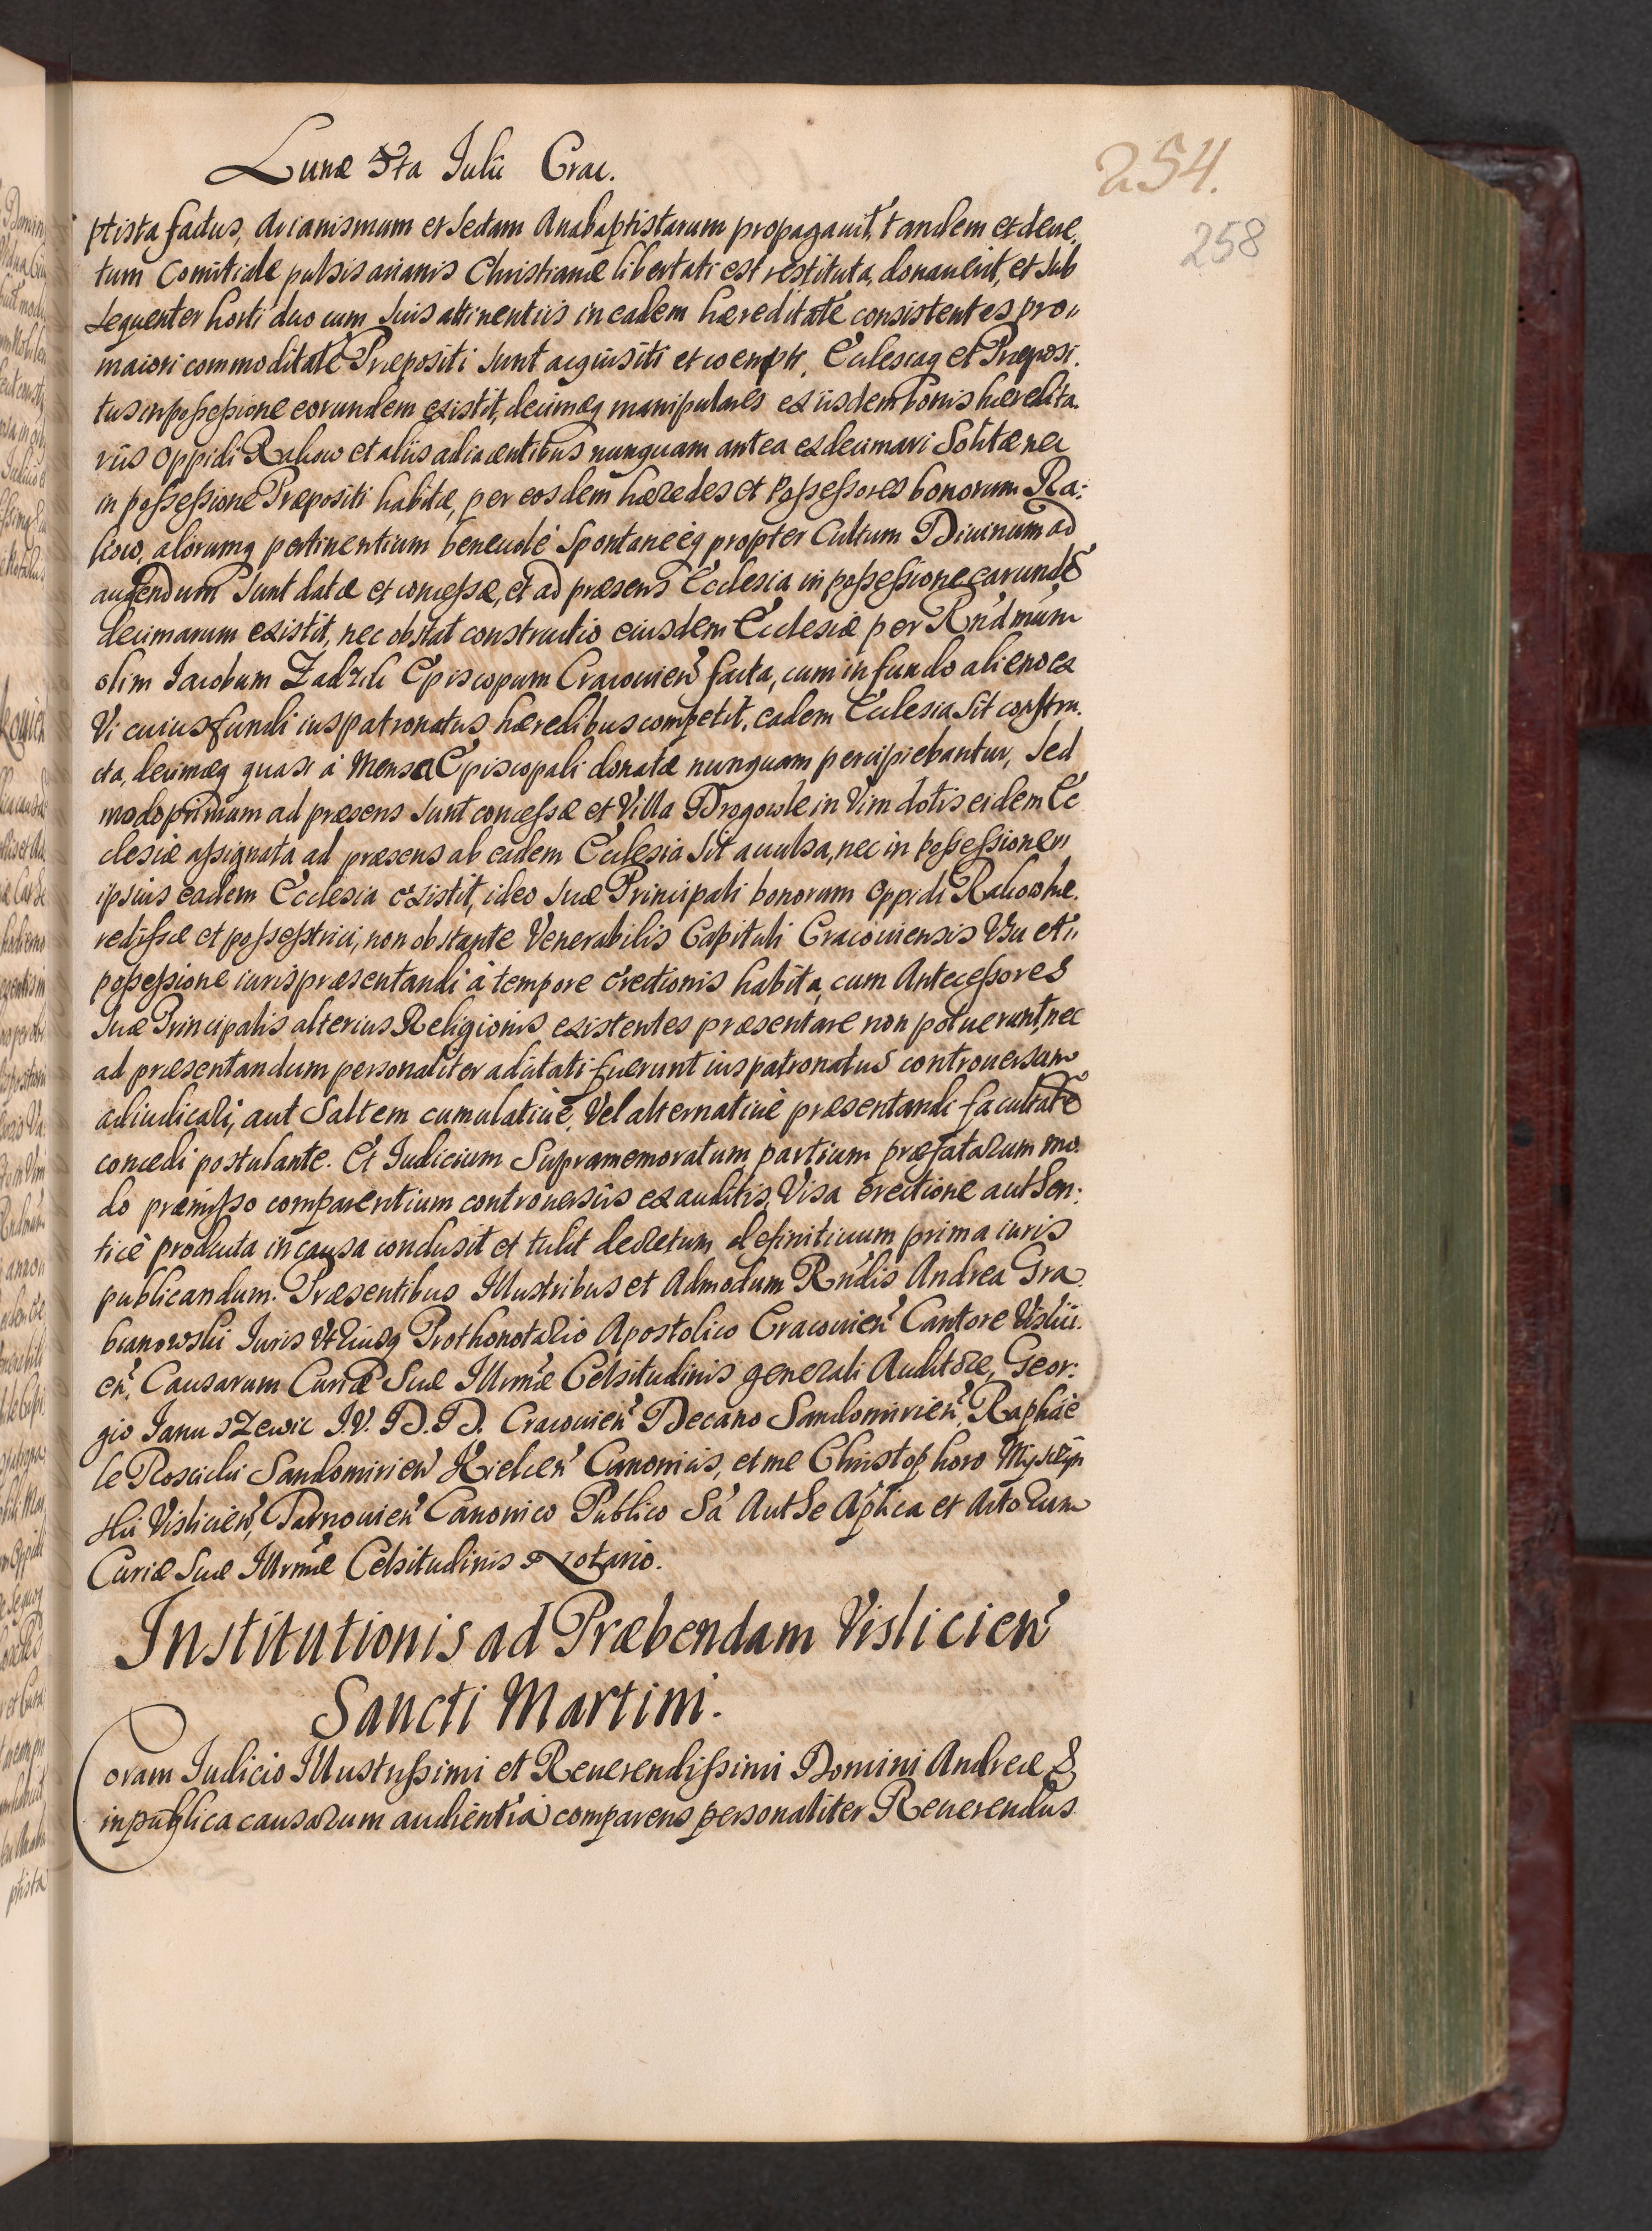 Lunæ 5ta Iulii Crac.
254.
258
ptista factus, Arianismum et Sectam Anabaptistarum propagauit, tandem et decre,
tum Comitiale pulsis arianis Christianæ libertati est restituta, donauerit, et Sub
sequenter horti duo cum Suis attinentiis in eadem hæreditate consistentes pro
maiori commoditate Præpositi Sunt acquisiti et coempti, Ecclesiaq et Præposi.
tus in possessione eorundem existit, decimæq manipulares ex iisdem bonis hæredita.
riis Oppidi Rakow et aliis adiacentibus nunquam antea exdecimari Solitæ nec
in possessione Præpositi habitæ, per eosdem hæredes et Possessores bonorum Ra:
kow, aliorumq pertinentium beneuolè Spontaneèq propter Cultum Diuinum ad
augendum Sunt datæ et concessæ, et ad præsens Ecclesia in possessione earundē
decimarum existit, nec obstat constructio eiusdem Ecclesiæ per Rńdmum
olim Iacobum Zadzik Episcopum Cracouień facta, cum in fundo alieno ex
Vi cuius fundi ius patronatus hæredibus competit, eadem Ecclesia Sit constru.
cta, decimæq quasi à Mensa Episcopali donatæ nunquam percipiebantur, Sed
modo primum ad præsens Sunt concessæ et Villa Drogowle in Vim dotis eidem Ec
clesiæ assignata ad præsens ab eadem Ecclesia Sit auulsa, nec in possessionem
ipsius eadem Ecclesia existit, ideo Suæ Principali bonorum Oppidi Rakow hæ.
redissæ et possessrici, non obstante Venerabilis Capituli Cracouiensis Vsu et
possessione iuris præsentandi à tempore erectionis habita, cum Antecessores
Suæ Principalis alterius Religionis existentes præsentare non potuerunt, nec
ad præsentandum personaliter adcitati fuerunt ius patronatus controuersum
adiudicari, aut Saltem cumulatiuè, Vel alternatiuè præsentandi facultatē
concedi postulante. Et Iudicium Supramemoratum partium præfatarum mo.
do præmisso comparentium controuersiis exauditis, Visa erectione authen:
ticè producta in causa conclusit et tulit decretum definitiuum prima iuris
publicandum. Præsentibus Illustribus et Admodum Rńdis Andrea Gra
bianowski Iuris Vtriusq Prothonotario Apostolico Cracouień Cantore Vislici.
eń, Causarum Curiæ Suæ Illrmæ Celsitudinis generali Auditore, Geor:
gio Ianuszewic I.V.D.D. Cracouień Decano Sandomirień, Raphae
le Roscicki Sandomirień Kielceń Canonicis, et me Christophoro Myszyn
ski Vislicień, Tarnouień Canonico Publico Sá Authe Aplica et Actorum
Curiæ Suæ Illrmæ Celsitudinis Notario.
Institutionis ad Præbendam Vislicień
Sancti Martini.
Coram Iudicio Illustrissimi et Reuerendissimi Domini Andreæ &
in publica causarum audientia comparens personaliter Reuerendus